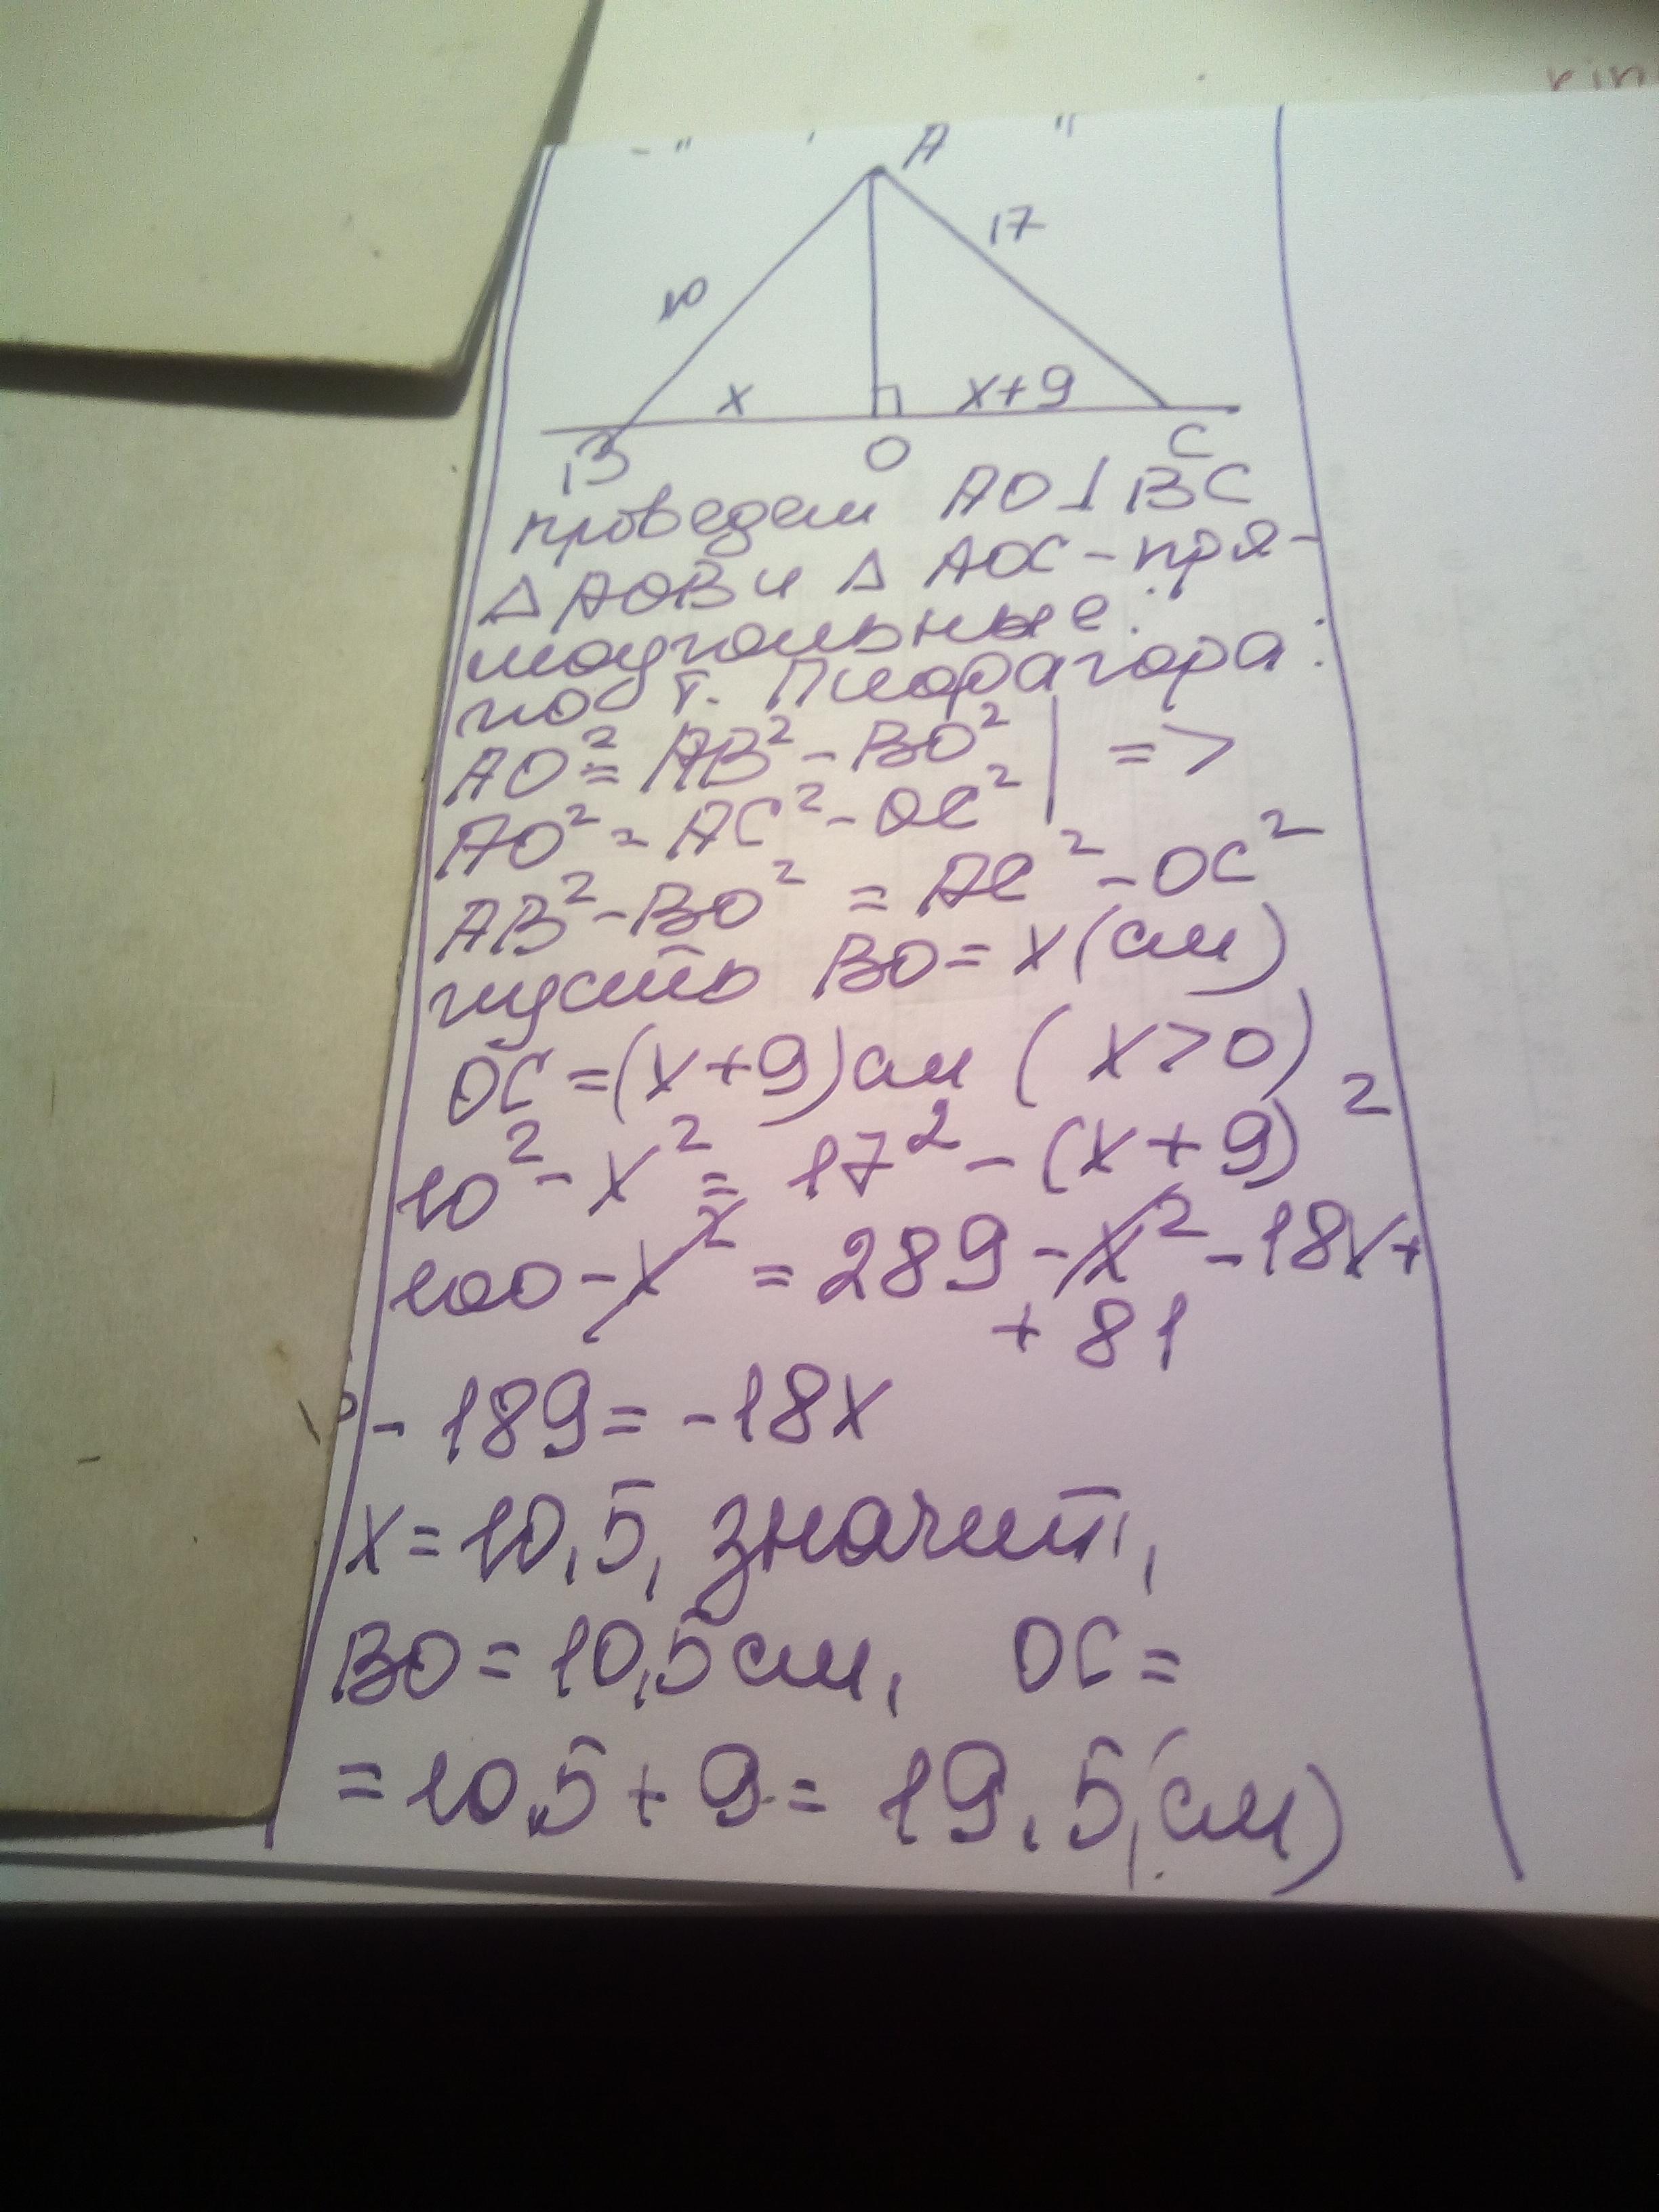 rin
A
10
17
x
x+9
B
O
C
проведем AO⊥BC
△AOB и △AOC-пря-
моугольные.
по т. Пифагора:
AO²=AB²-BO² | =>
AO²=AC²-OC²
AB²-BO²=AC²-OC²
пусть BO=x(см)
OC=(x+9)см (x>0)
10²-x²=17²-(x+9)²
100-x²=289-x²-18x+
+81
-189=-18x
x=10,5, значит,
BO=10,5см, OC=
=10,5+9=19,5(см)